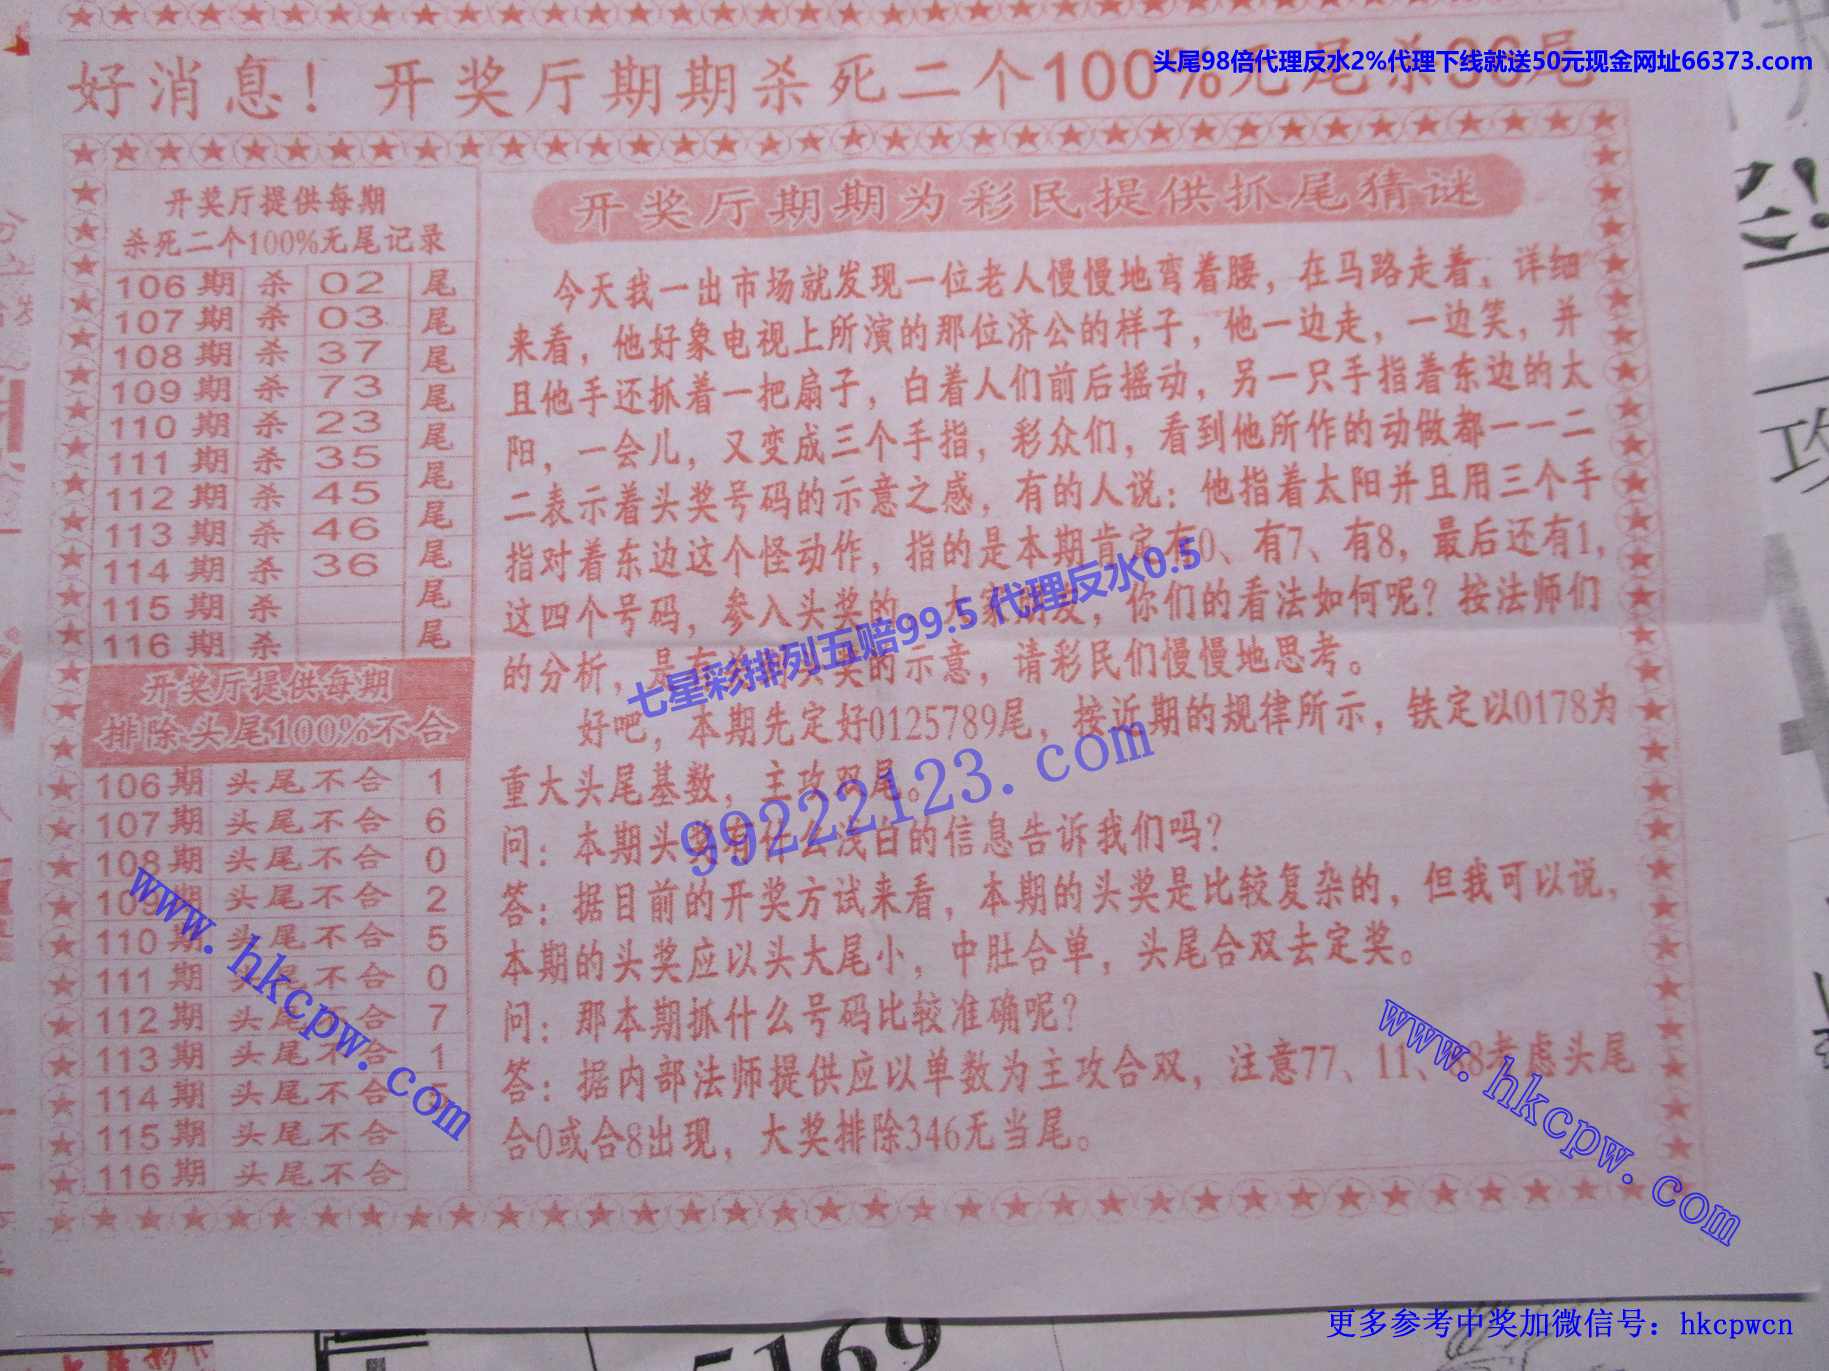 头尾98倍代理反水2%代理下线就送50元现金网址66373.com
好消息！开奖厅期期杀死二个100%无尾杀36尾
开奖厅提供每期
杀死二个100%无尾记录
106期 杀 02 尾
107期 杀 03 尾
108期 杀 37 尾
109期 杀 73 尾
110期 杀 23 尾
111期 杀 35 尾
112期 杀 45 尾
113期 杀 46 尾
114期 杀 36 尾
115期 杀 尾
116期 杀 尾
开奖厅提供每期
排除头尾100%不合
106期 头尾不合 1
107期 头尾不合 6
108期 头尾不合 0
109期 头尾不合 2
110期 头尾不合 5
111期 头尾不合 0
112期 头尾不合 7
113期 头尾不合 1
114期 头尾不合
115期 头尾不合
116期 头尾不合
开奖厅期期为彩民提供抓尾猜谜
今天我一出市场就发现一位老人慢慢地弯着腰，在马路走着，详细
来看，他好象电视上所演的那位济公的样子，他一边走，一边笑，并
且他手还抓着一把扇子，白着人们前后摇动，另一只手指着东边的太
阳，一会儿，又变成三个手指，彩众们，看到他所作的动做都一一二
二表示着头奖号码的示意之感，有的人说：他指着太阳并且用三个手
指对着东边这个怪动作，指的是本期肯定有0、有7、有8，最后还有1，
这四个号码，参入头奖的，大家朋友，你们的看法如何呢？按法师们
的分析，是有头奖的示意，请彩民们慢慢地思考。
好吧，本期先定好0125789尾，按近期的规律所示，铁定以0178为
重大头尾基数，主攻双尾。
问：本期头奖有什么浅白的信息告诉我们吗？
答：据目前的开奖方试来看，本期的头奖是比较复杂的，但我可以说，
本期的头奖应以头大尾小，中肚合单，头尾合双去定奖。
问：那本期抓什么号码比较准确呢？
答：据内部法师提供应以单数为主攻合双，注意77、11、88考虑头尾
合0或合8出现，大奖排除346无当尾。
七星彩排列五赔99.5 代理反水0.5
99222123.com
www.hkcpw.com
www.hkcpw.com
攻
5169
更多参考中奖加微信号：hkcpwcn